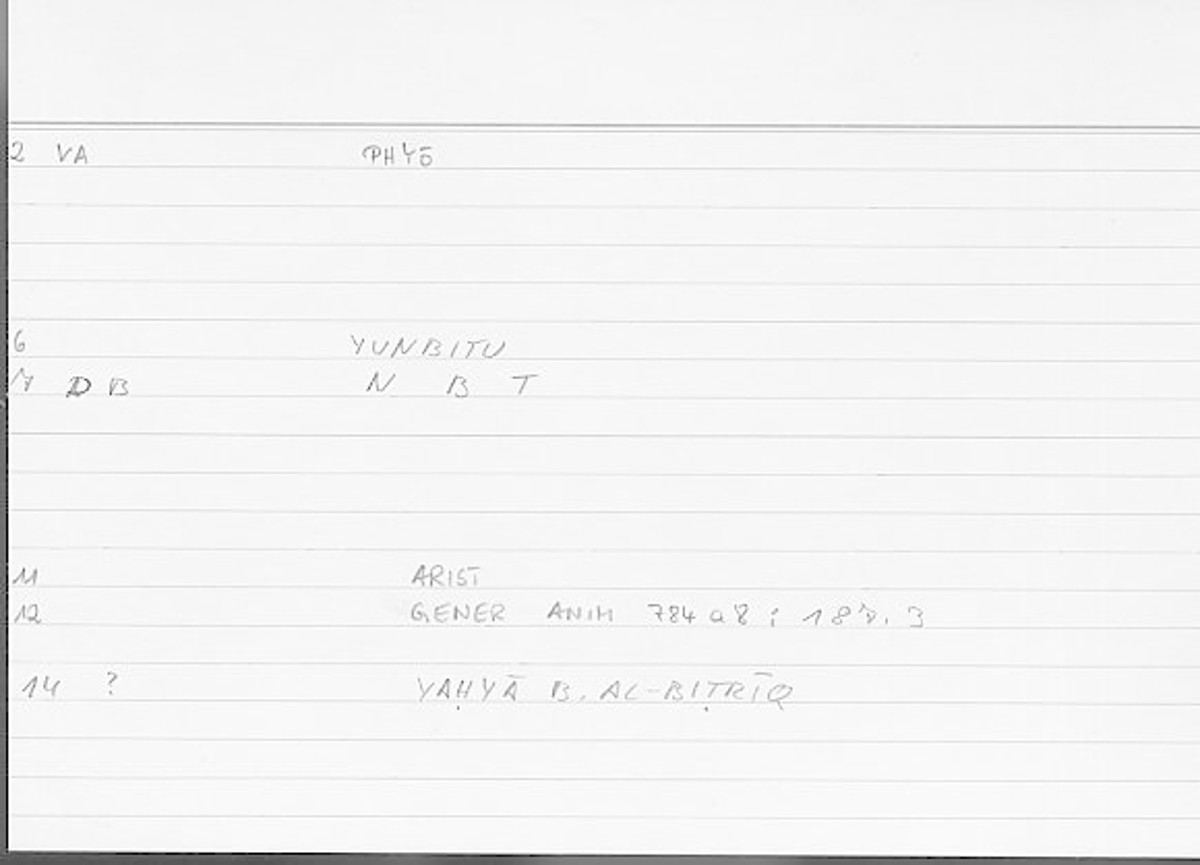 2 VA PHYŌ
6 YUNBITU
7 DB N B T
11 ARIST
12 GENER ANIM 784 a 8 ; 187. 3
14 ? YAḤYĀ B. AL-BIṬRĪQ